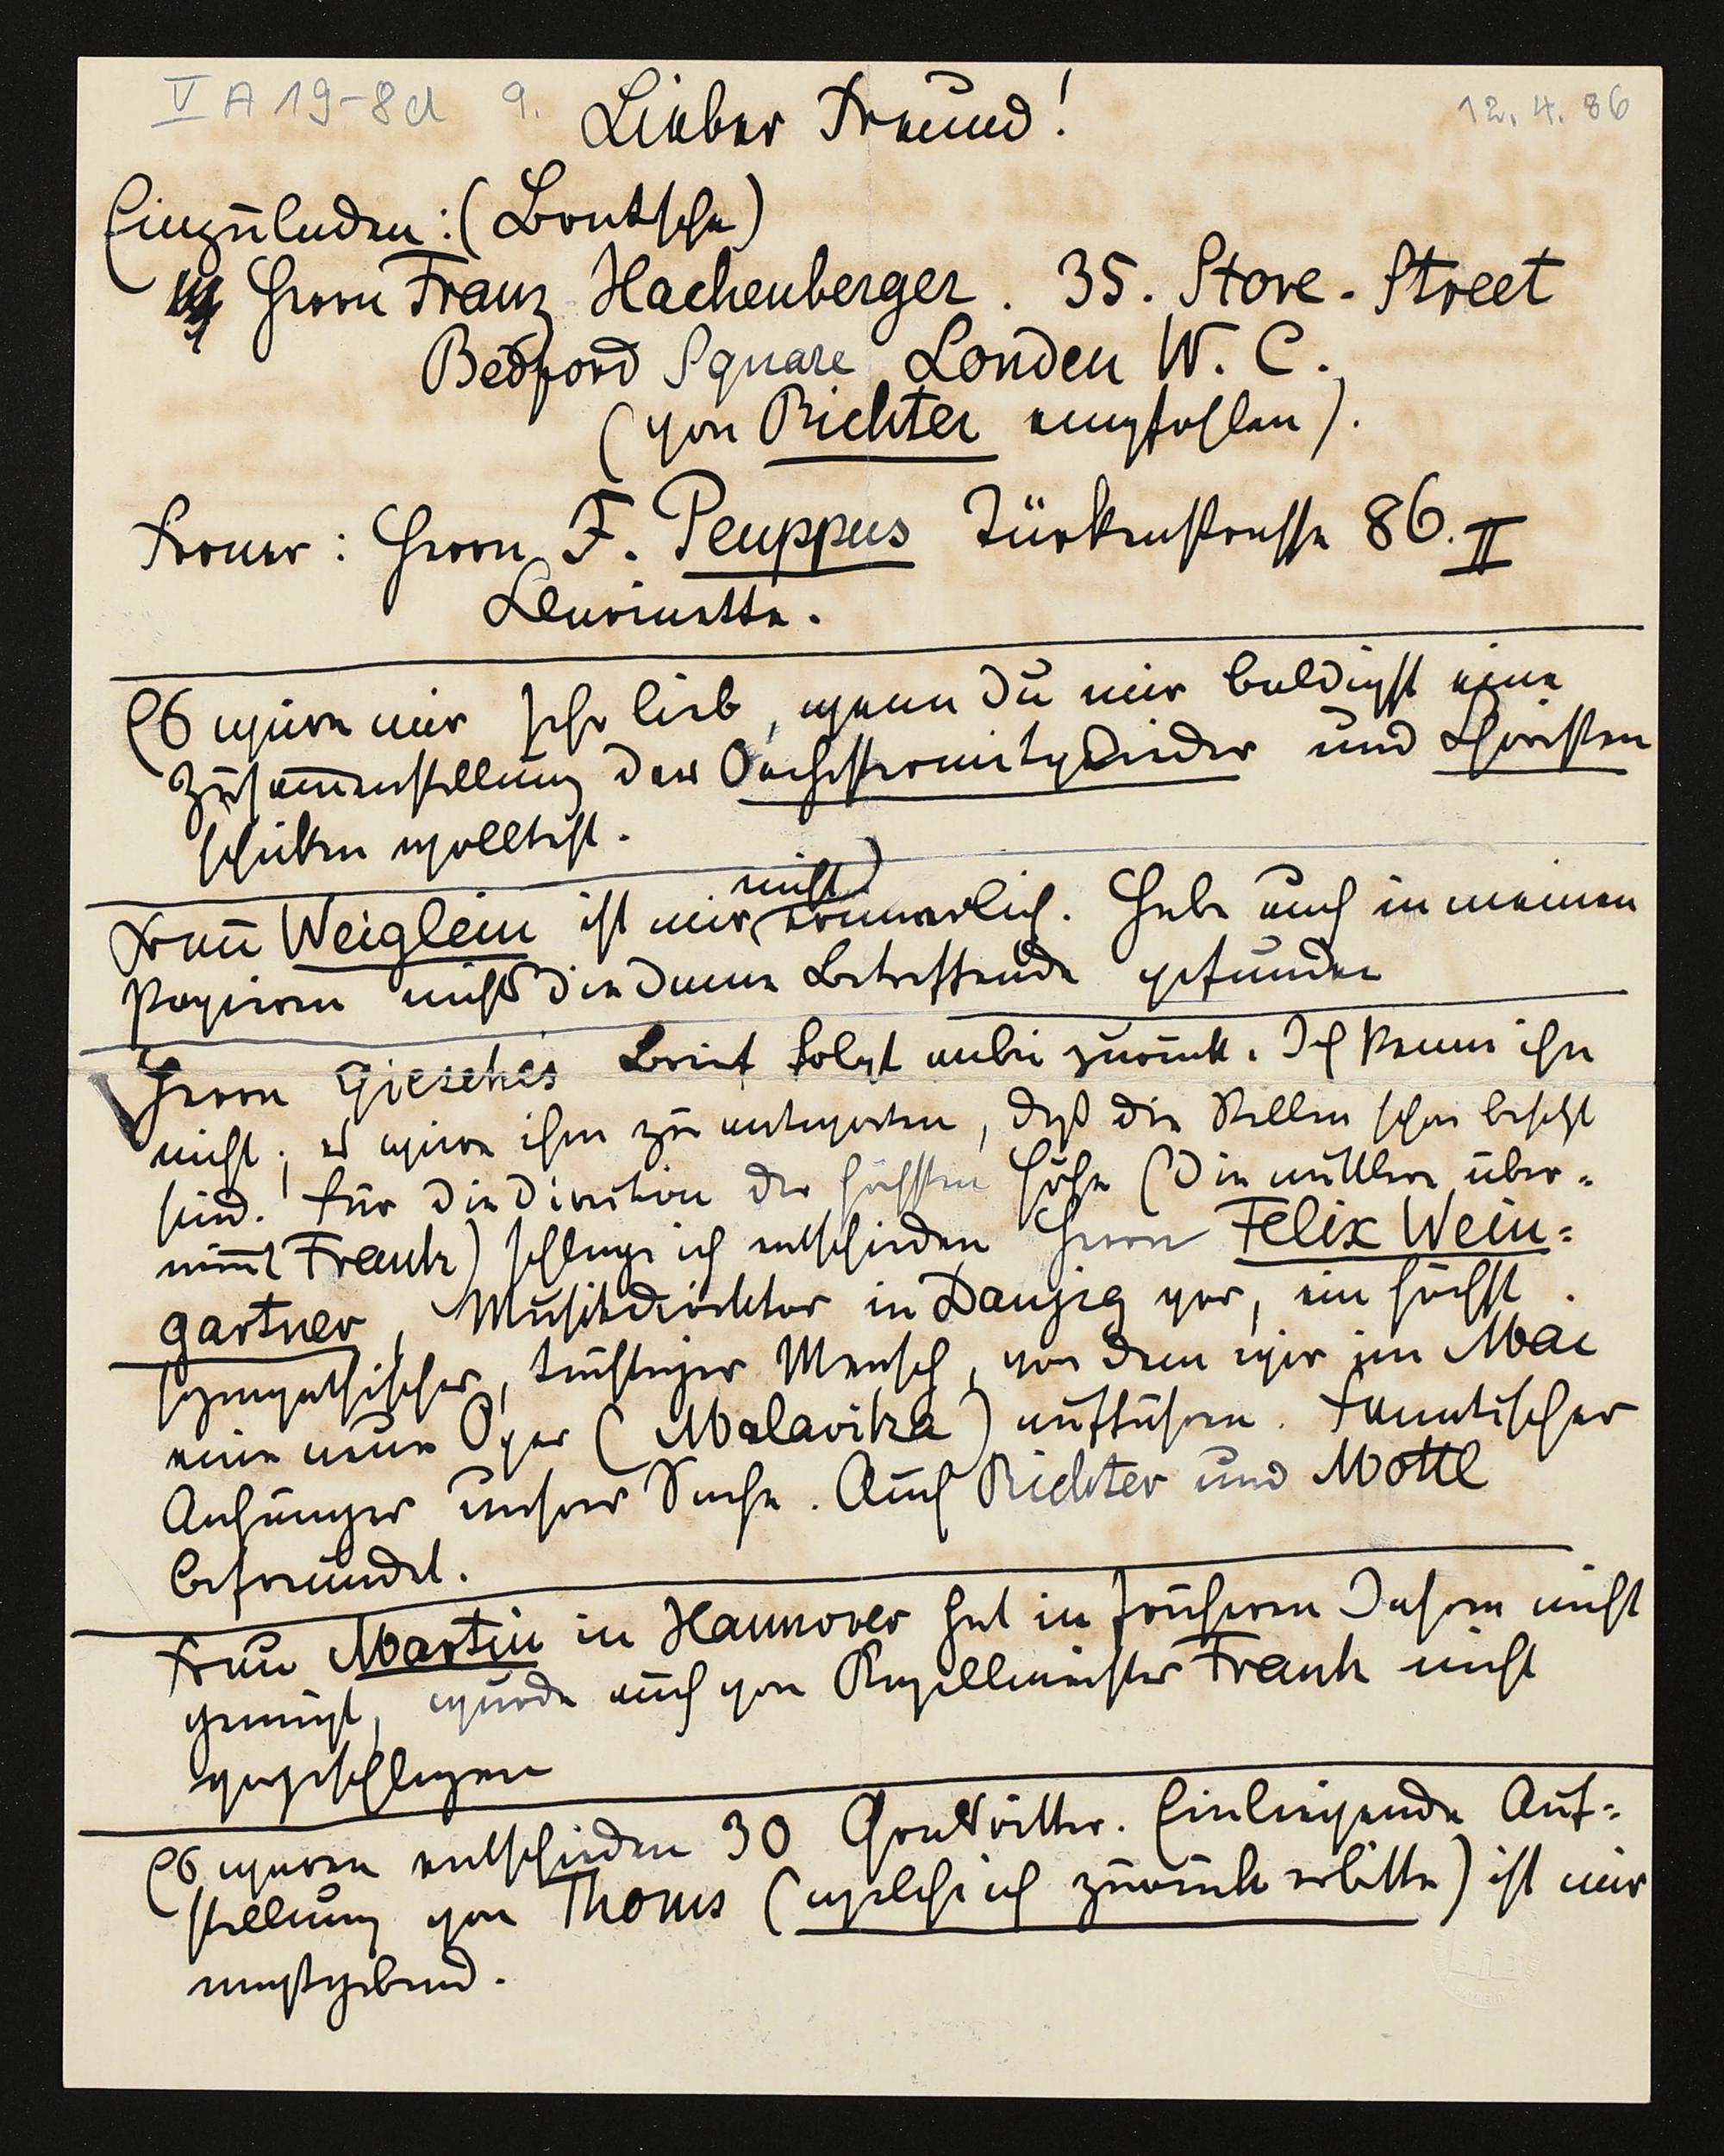 V A 19-8d 9.
12. 4. 86
Lieber Freund!
Einzuladen: (Bratsche)
Herrn Franz Hachenberger. 35. Store-Street
Bedford Square London W. C.,
(von Richter empfohlen).
Ferner: Herrn F. Peuppus Türkenstrasse 86. II
Clarinette.
Es wäre mir sehr lieb, wenn Du mir baldigst eine
Zusam̅enstellung der Orchestermitglieder und Choristen
schicken wolltest.
Frau Weiglein ist mir nicht erinnerlich. Habe auch in meinen
Papieren nichts die Dame Betreffende gefunden
Herrn Giesekes Brief folgt anbei zurück. Ich kenne ihn
nicht; es wäre ihm zu antworten, daß die Stellen schon besetzt
sind. Für die Direktion der höchsten Höhe (die mittlere über=
nim̅t Frank) schlage ich entschieden Herrn Felix Wein=
gartner, Musikdirektor in Danzig vor, ein höchst
sympathischer, tüchtiger Mensch, von dem wir im Mai
eine neue Oper (Malavika) aufführen. Fanatischer
Anhänger unsrer Sache. Auch Richter und Mottl
befreundet.
Frau Martin in Hannover hat in früheren Jahren nicht
genügt, wurde auch von Kapellmeister Frank nicht
vorgeschlagen
Es waren entschieden 30 Gralsritter. Einliegende Auf=
stellung von Thoms (welche ich zurück erbitte) ist mir
maßgebend.